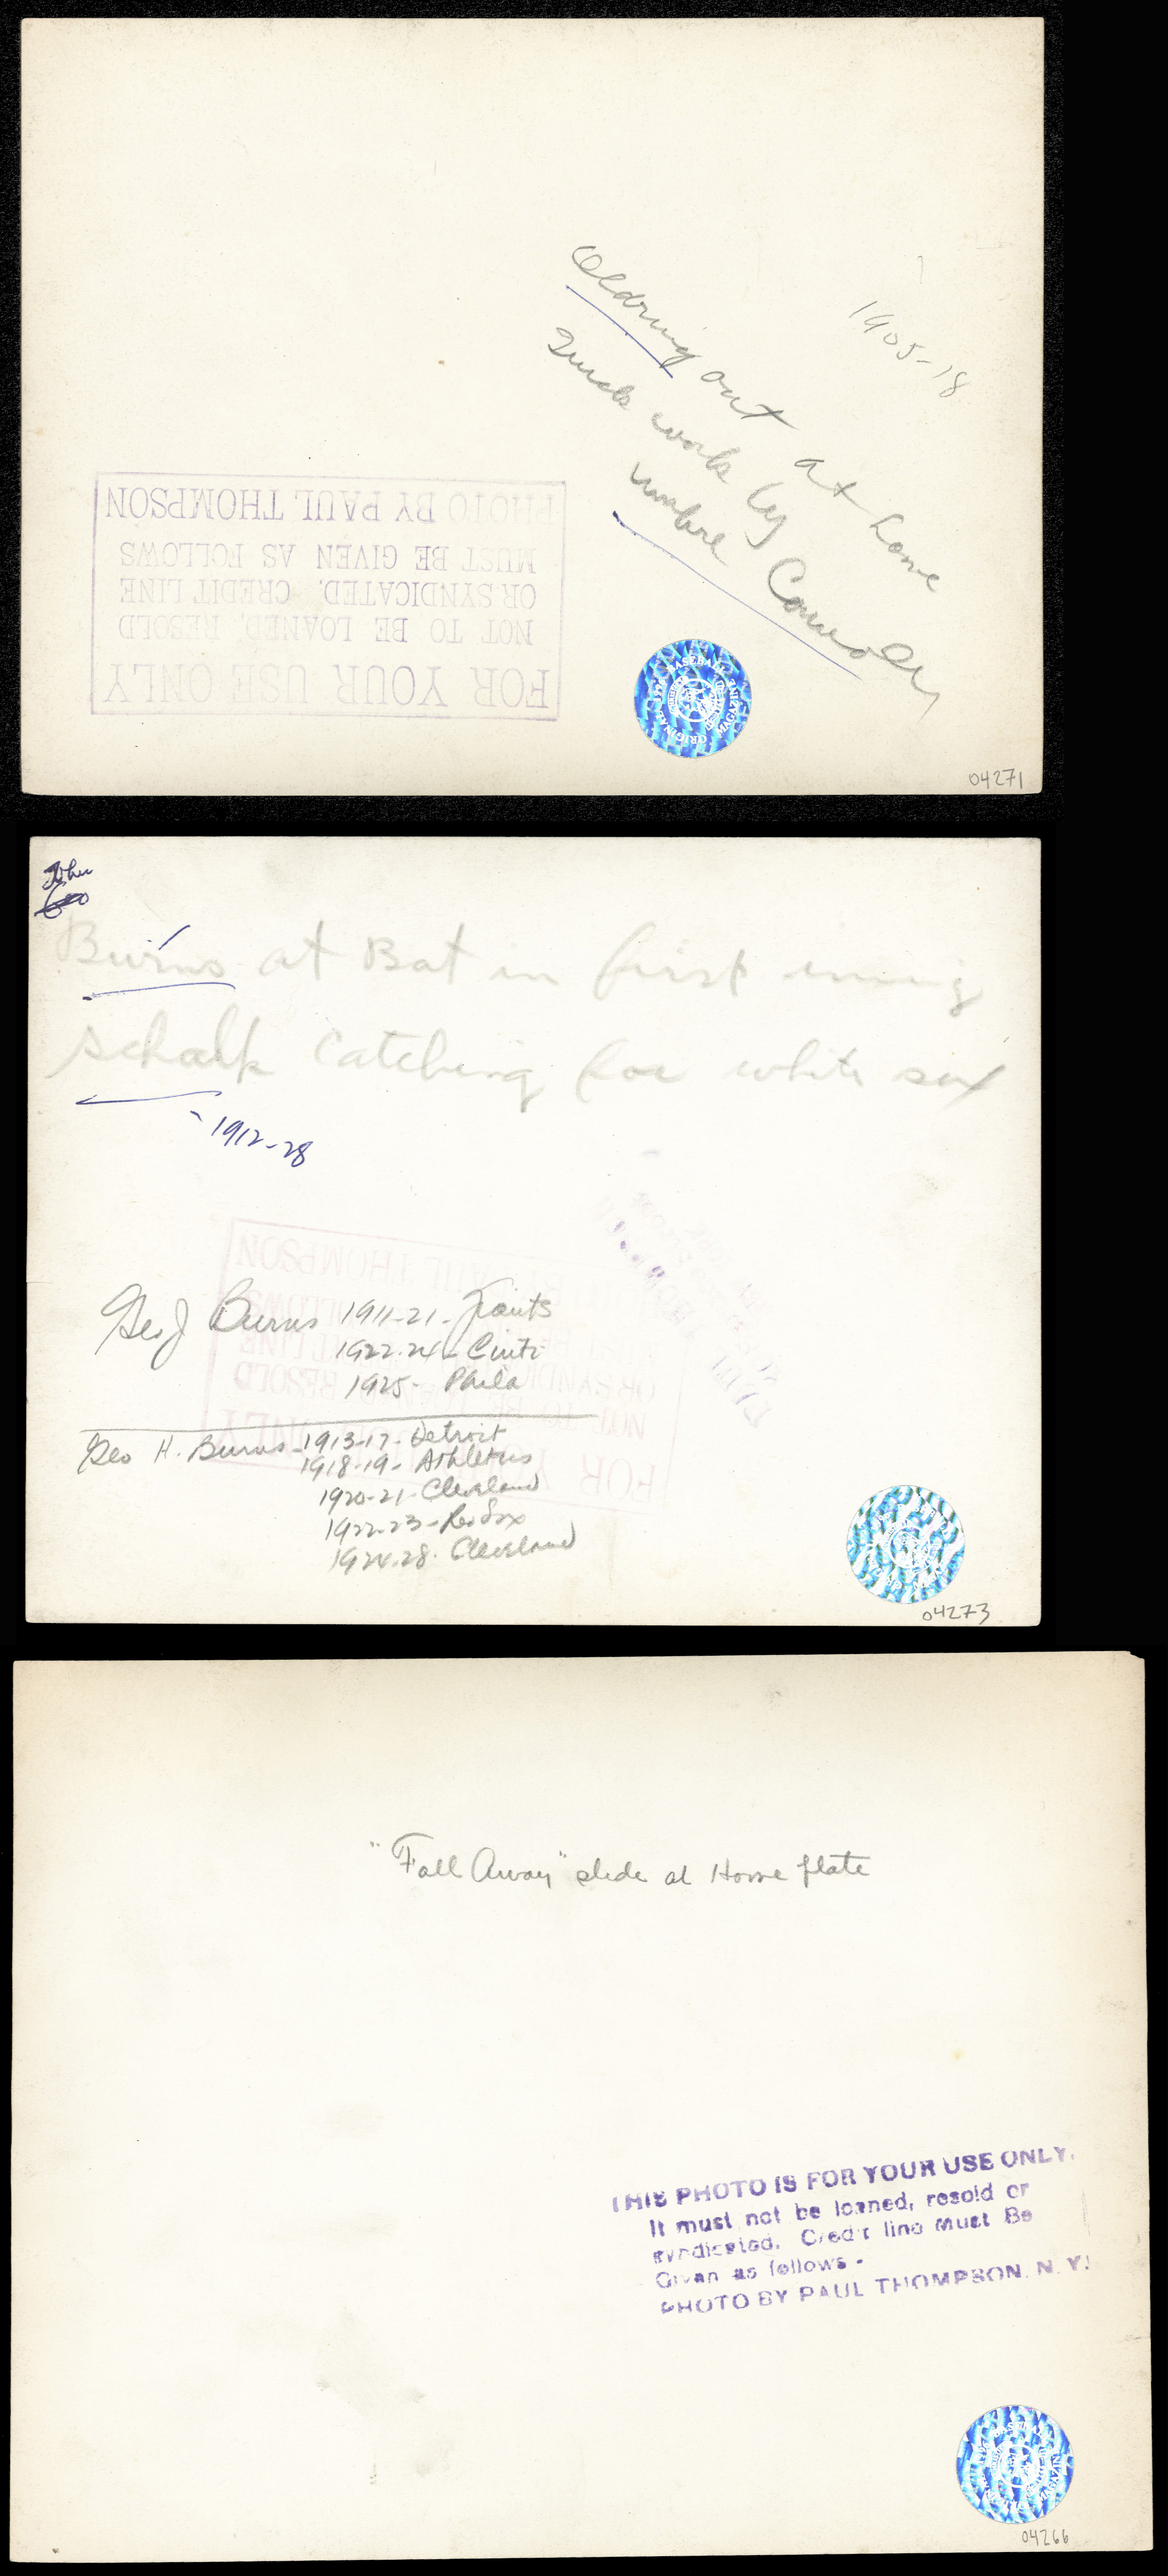 Oldring out at home
Quick work by
Umpire Connolly
1905-18
FOR YOUR USE ONLY
NOT TO BE LOANED, RESOLD
OR SYNDICATED. CREDIT LINE
MUST BE GIVEN AS FOLLOWS
PHOTO BY PAUL THOMPSON
ORIGINAL BASEBALL MAGAZINE
04271
John
Geo
Burns at Bat in first inning
Schalk catching for white sox
1912-28
FOR YOUR USE ONLY
NOT TO BE LOANED, RESOLD
OR SYNDICATED. CREDIT LINE
MUST BE GIVEN AS FOLLOWS
PHOTO BY PAUL THOMPSON
Geo J Burns 1911-21-Giants
1922-24-Cinti
1925- Phila
Geo H. Burns-1913-17-Detroit
1918-19- Athletics
1920-21-Cleveland
1922-23-Red Sox
1924-28. Cleveland
04273
"Fall Away" slide at Home plate
THIS PHOTO IS FOR YOUR USE ONLY.
It must not be loaned, resold or
syndicated. Credit line Must Be
Given as follows-
PHOTO BY PAUL THOMPSON. N. Y.
04266